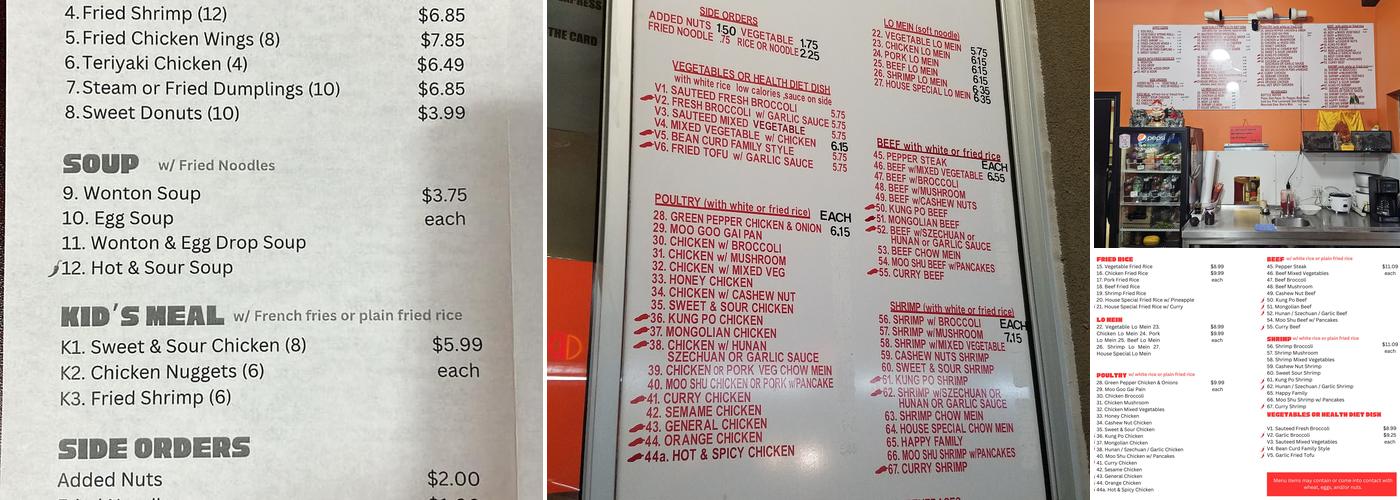 4. Fried Shrimp (12) $6.85
5. Fried Chicken Wings (8) $7.85
6. Teriyaki Chicken (4) $6.49
7. Steam or Fried Dumplings (10) $6.85
8. Sweet Donuts (10) $3.99
SOUP w/ Fried Noodles
9. Wonton Soup $3.75
10. Egg Soup each
11. Wonton & Egg Drop Soup
12. Hot & Sour Soup
KID'S MEAL w/ French fries or plain fried rice
K1. Sweet & Sour Chicken (8) $5.99
K2. Chicken Nuggets (6) each
K3. Fried Shrimp (6)
SIDE ORDERS
Added Nuts $2.00
THE CARD
SIDE ORDERS
ADDED NUTS 1.50 VEGETABLE 1.75
FRIED NOODLE .75 RICE OR NOODLE 2.25
VEGETABLES OR HEALTH DIET DISH
with white rice low calories ,sauce on side
V1. SAUTEED FRESH BROCCOLI 5.75
V2. FRESH BROCCOLI w/ GARLIC SAUCE 5.75
V3. SAUTEED MIXED VEGETABLE 5.75
V4. MIXED VEGETABLE w/ CHICKEN 6.15
V5. BEAN CURD FAMILY STYLE 5.75
V6. FRIED TOFU w/ GARLIC SAUCE 5.75
POULTRY (with white or fried rice) EACH
28. GREEN PEPPER CHICKEN & ONION 6.15
29. MOO GOO GAI PAN
30. CHICKEN w/ BROCCOLI
31. CHICKEN w/ MUSHROOM
32. CHICKEN w/ MIXED VEG
33. HONEY CHICKEN
34. CHICKEN w/ CASHEW NUT
35. SWEET & SOUR CHICKEN
36. KUNG PO CHICKEN
37. MONGOLIAN CHICKEN
38. CHICKEN w/ HUNAN
SZECHUAN OR GARLIC SAUCE
39. CHICKEN OR PORK VEG CHOW MEIN
40. MOO SHU CHICKEN OR PORK w/PANCAKE
41. CURRY CHICKEN
42. SEMAME CHICKEN
43. GENERAL CHICKEN
44. ORANGE CHICKEN
44a. HOT & SPICY CHICKEN
LO MEIN (soft noodle)
22. VEGETABLE LO MEIN 5.75
23. CHICKEN LO MEIN 6.15
24. PORK LO MEIN 6.15
25. BEEF LO MEIN 6.35
26. SHRIMP LO MEIN 6.35
27. HOUSE SPECIAL LO MEIN
BEEF with white or fried rice
45. PEPPER STEAK EACH
46. BEEF w/MIXED VEGETABLE 6.55
47. BEEF w/BROCCOLI
48. BEEF w/MUSHROOM
49. BEEF w/CASHEW NUTS
50. KUNG PO BEEF
51. MONGOLIAN BEEF
52. BEEF w/SZECHUAN or
HUNAN or GARLIC SAUCE
53. BEEF CHOW MEIN
54. MOO SHU BEEF w/PANCAKES
55. CURRY BEEF
SHRIMP (with white or fried rice)
56. SHRIMP w/ BROCCOLI EACH
57. SHRIMP w/MUSHROOM 7.15
58. SHRIMP w/MIXED VEGETABLE
59. CASHEW NUTS SHRIMP
60. SWEET & SOUR SHRIMP
61. KUNG PO SHRIMP
62. SHRIMP w/SZECHUAN OR
HUNAN OR GARLIC SAUCE
63. SHRIMP CHOW MEIN
64. HOUSE SPECIAL CHOW MEIN
65. HAPPY FAMILY
66. MOO SHU SHRIMP w/PANCAKES
67. CURRY SHRIMP
pepsi
FRIED RICE
15. Vegetable Fried Rice $8.99
16. Chicken Fried Rice $9.99
17. Pork Fried Rice each
18. Beef Fried Rice
19. Shrimp Fried Rice
20. House Special Fried Rice w/ Pineapple
21. House Special Fried Rice w/ Curry
LO MEIN
22. Vegetable Lo Mein 23. $8.99
Chicken Lo Mein 24. Pork $9.99
Lo Mein 25. Beef Lo Mein each
26. Shrimp Lo Mein 27.
House Special Lo Mein
POULTRY w/ white rice or plain fried rice
28. Green Pepper Chicken & Onions $9.99
29. Moo Goo Gai Pan each
30. Chicken Broccoli
31. Chicken Mushroom
32. Chicken Mixed Vegetables
33. Honey Chicken
34. Cashew Nut Chicken
35. Sweet & Sour Chicken
36. Kung Po Chicken
37. Mongolian Chicken
38. Hunan / Szechuan / Garlic Chicken
40. Moo Shu Chicken w/ Pancakes
41. Curry Chicken
42. Sesame Chicken
43. General Chicken
44. Orange Chicken
44a. Hot & Spicy Chicken
BEEF w/ white rice or plain fried rice
45. Pepper Steak $11.09
46. Beef Mixed Vegetables each
47. Beef Broccoli
48. Beef Mushroom
49. Cashew Nut Beef
50. Kung Po Beef
51. Mongolian Beef
52. Hunan / Szechuan / Garlic Beef
54. Moo Shu Beef w/ Pancakes
55. Curry Beef
SHRIMP w/ white rice or plain fried rice
56. Shrimp Broccoli $11.09
57. Shrimp Mushroom each
58. Shrimp Mixed Vegetables
59. Cashew Nut Shrimp
60. Sweet Sour Shrimp
61. Kung Po Shrimp
62. Hunan / Szechuan / Garlic Shrimp
65. Happy Family
66. Moo Shu Shrimp w/ Pancakes
67. Curry Shrimp
VEGETABLES OR HEALTH DIET DISH
V1. Sauteed Fresh Broccoli $8.99
V2. Garlic Broccoli $9.25
V3. Sauteed Mixed Vegetables each
V4. Bean Curd Family Style
V5. Garlic Fried Tofu
Menu items may contain or come into contact with
wheat, eggs, and/or nuts.